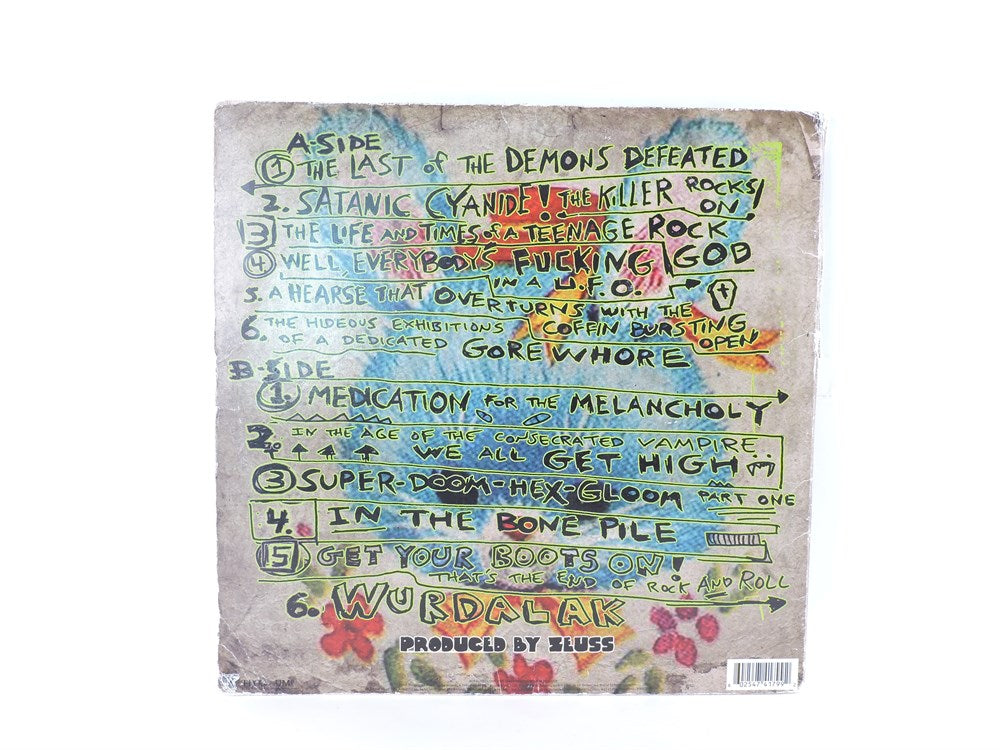 A-SIDE
1 THE LAST of THE DEMONS DEFEATED
2. SATANIC CYANIDE! THE KILLER ROCKS ON!
3 THE LIFE AND TIMES of A TEENAGE ROCK GOD
4 WELL, EVERYBODY'S FUCKING IN A U.F.O.
5. A HEARSE THAT OVERTURNS WITH THE COFFIN BURSTING OPEN
6. THE HIDEOUS EXHIBITIONS OF A DEDICATED GORE WHORE
B-SIDE
1. MEDICATION FOR THE MELANCHOLY
2. IN THE AGE OF THE CONSECRATED VAMPIRE WE ALL GET HIGH
3 SUPER-DOOM-HEX-GLOOM PART ONE
4. IN THE BONE PILE
5 GET YOUR BOOTS ON! THAT'S THE END OF ROCK AND ROLL
6. WURDALAK
PRODUCED BY ZEUSS